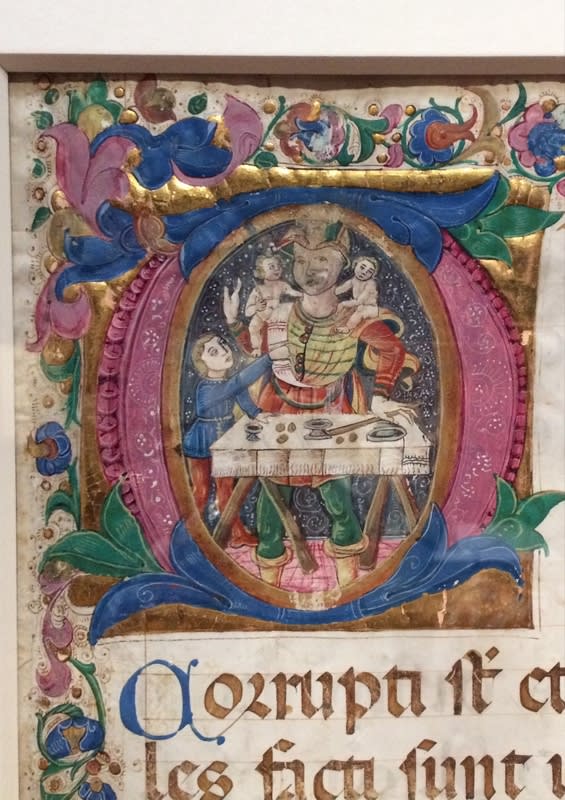 Corrupti st̄ et
les facti sunt